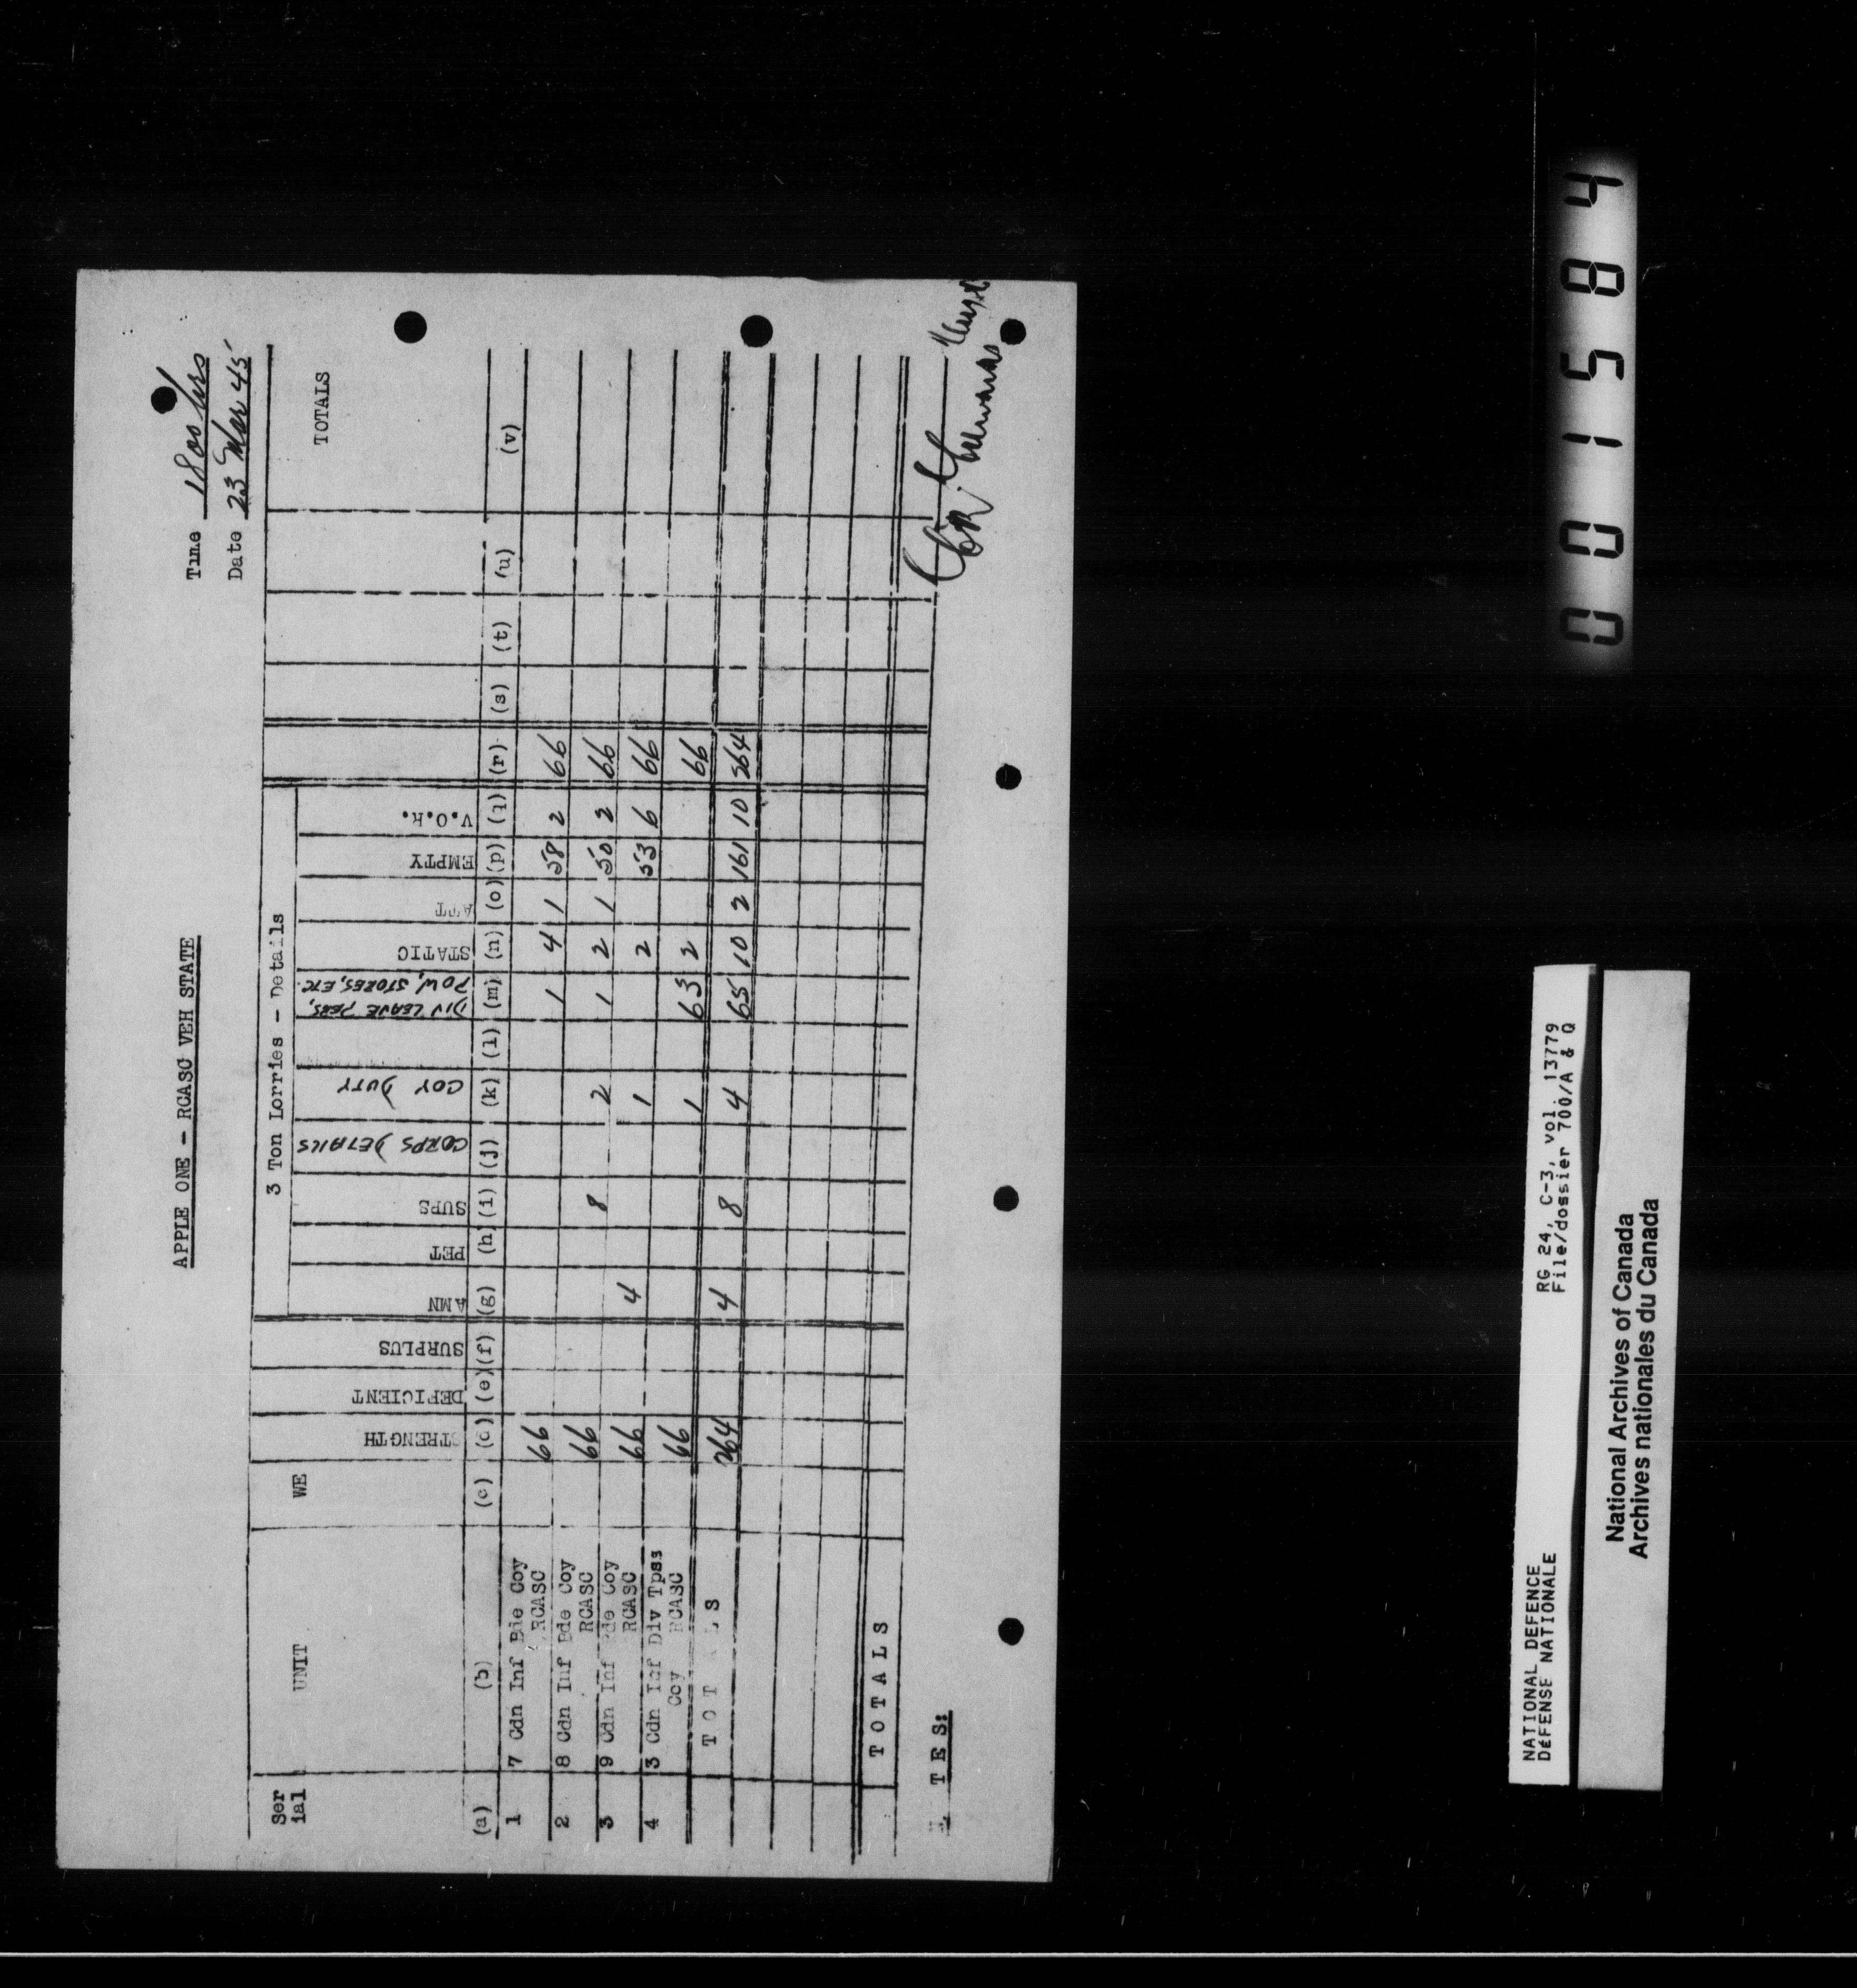 APPLE ONE - RCASC VEH STATE
Time 1800 hrs
Date 23 Mar 45
Ser ial UNIT WE STRENGTH DEFICIENT SURPLUS 3 Ton Lorries - Details TOTALS
AMN PET SUPS CORPS DETAILS COY DUTY DIV LEAVE PERS, POW, STORES, ETC. STATIC ATT EMPTY V.O.R.
(a) (b) (c) (d) (e) (f) (g) (h) (i) (j) (k) (l) (m) (n) (o) (p) (q) (r) (s) (t) (u) (v)
1 7 Cdn Inf Bde Coy RCASC 66 1 4 1 58 2 66
2 8 Cdn Inf Bde Coy RCASC 66 8 2 1 2 1 50 2 66
3 9 Cdn Inf Bde Coy RCASC 66 4 1 2 53 6 66
4 3 Cdn Inf Div Tps Coy RCASC 66 1 63 2 66
T O T A L S 264 4 8 4 65 10 2 161 10 264
T O T A L S
T E S:
0 0 1 5 8 4
NATIONAL DEFENCE RG 24, C-3, vol. 13779
DÉFENSE NATIONALE File/dossier 700/A & Q
National Archives of Canada
Archives nationales du Canada